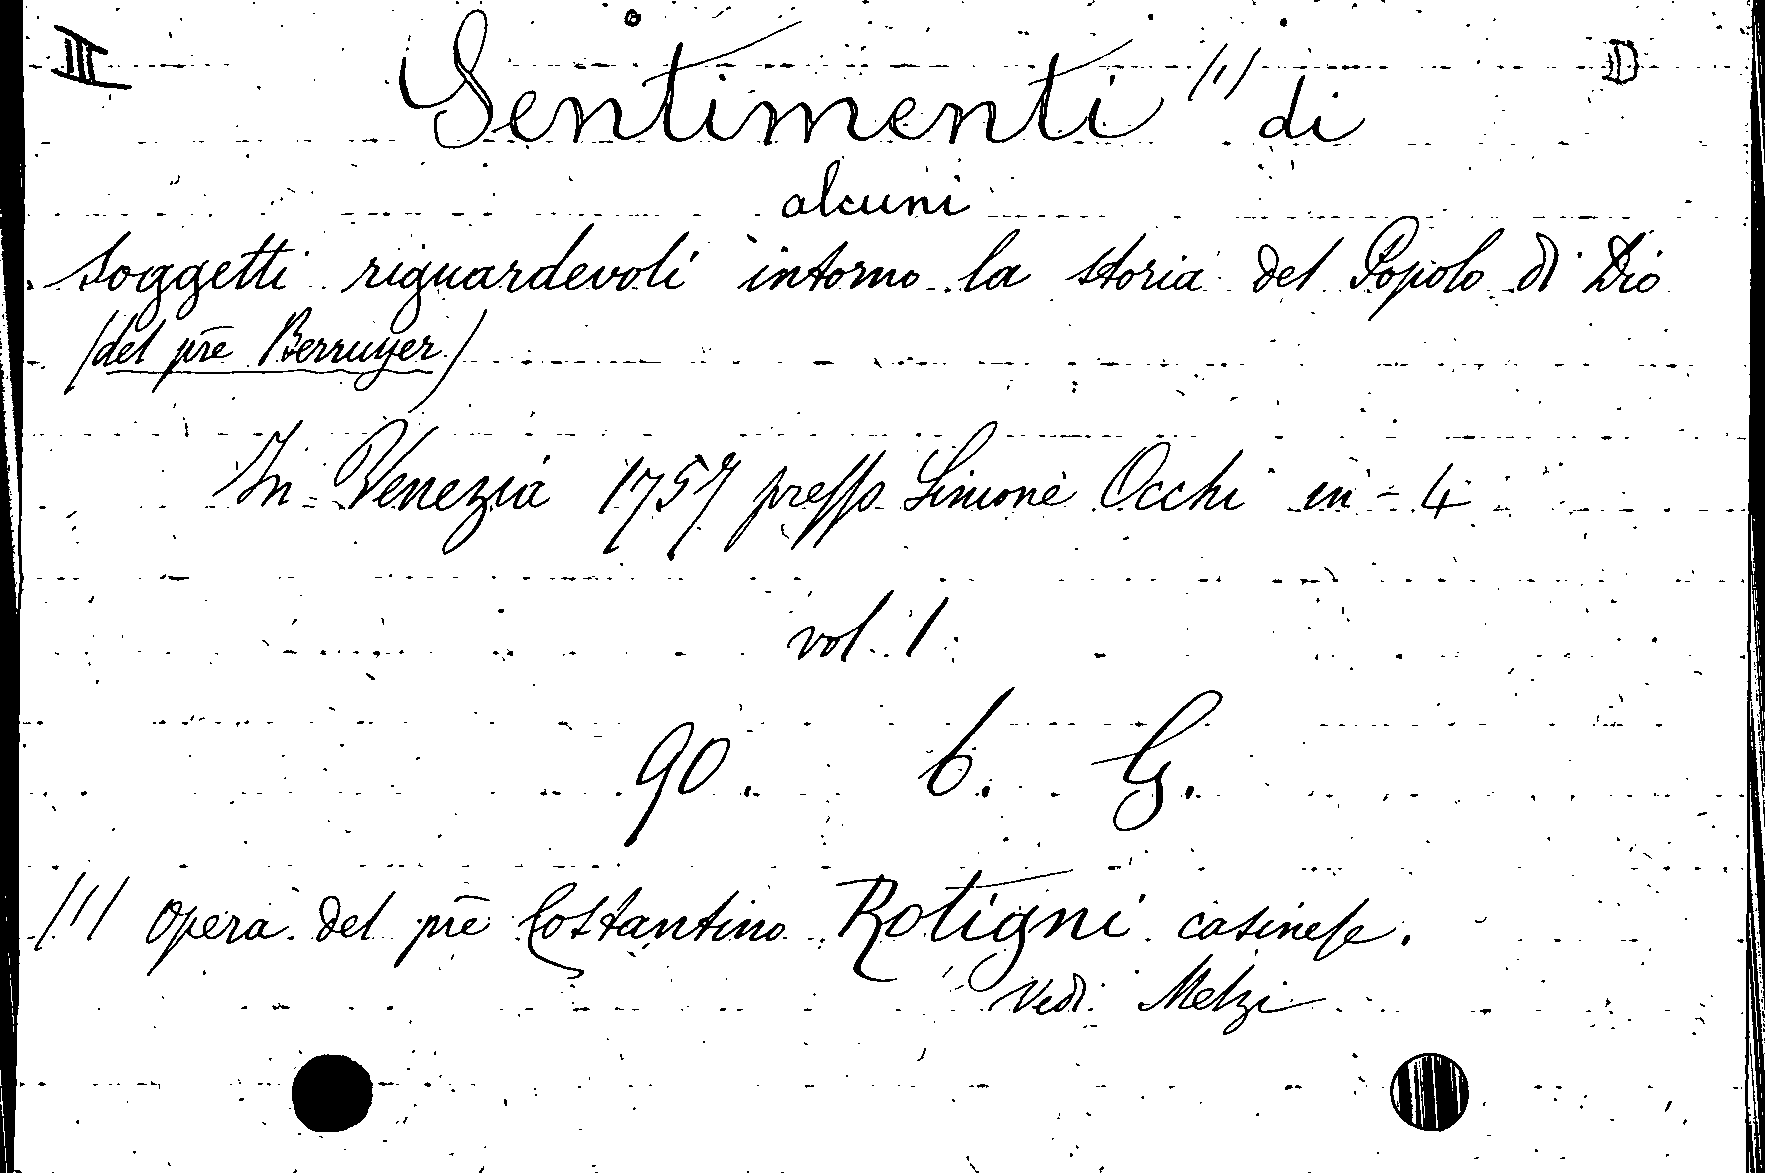 III Sentimenti (1) di D
alcuni
soggetti riguardevoli intorno la storia del Popolo di Dio
(del pre Berruyer)
In Venezia 1757 presso Simone Occhi in-4
vol. 1.
90. 6. G.
(1) opera del pre Costantino Rotigni casinese.
Vedi Melzi